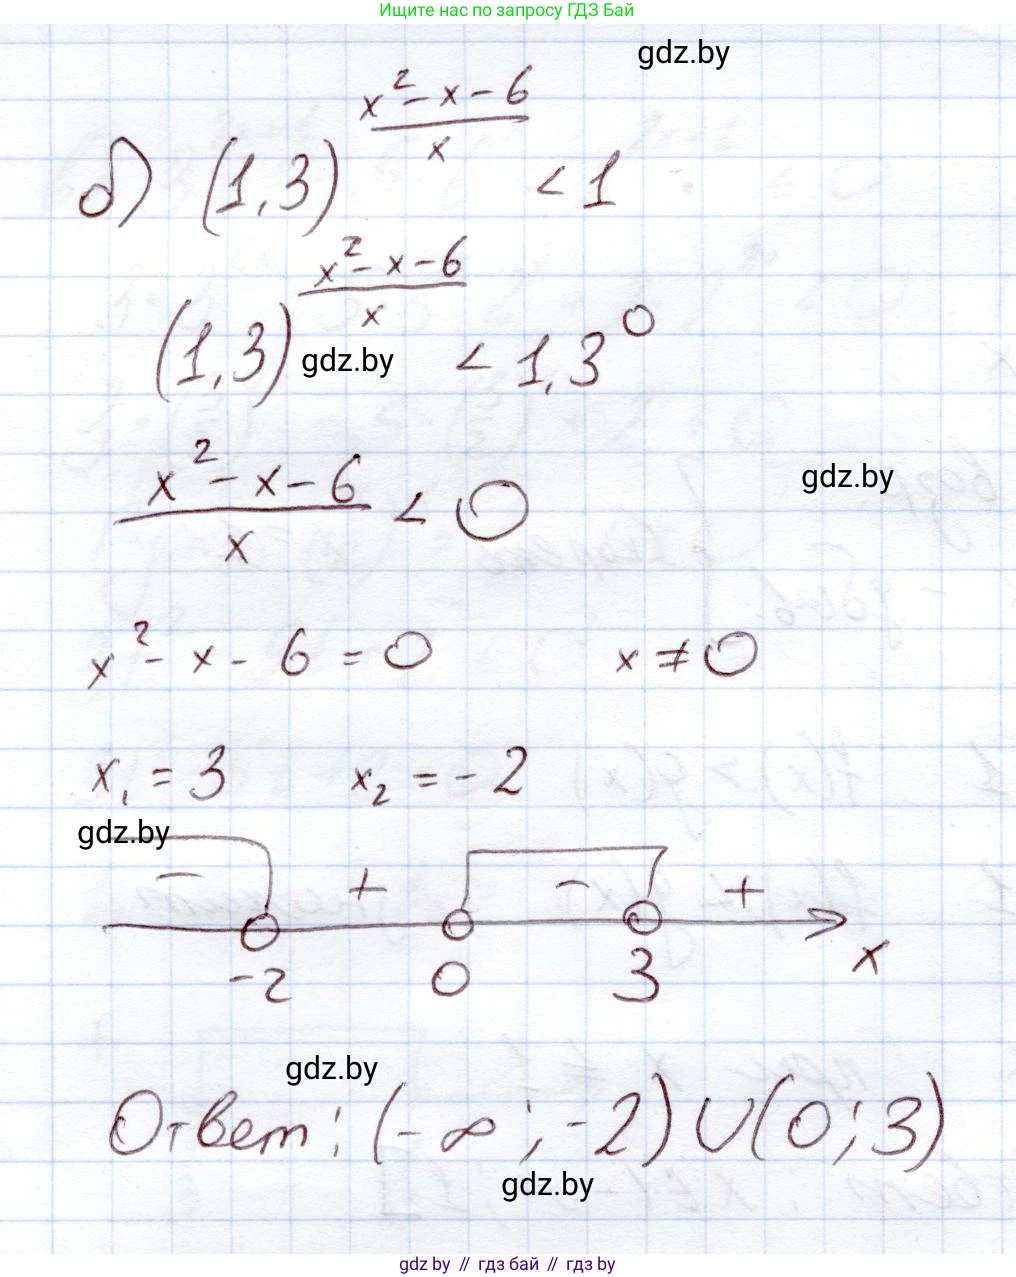 Ищите нас по запросу ГДЗ Бай
gdz.by
б) (1,3)^((x²-x-6)/x) < 1
(1,3)^((x²-x-6)/x) < 1,3⁰
gdz.by
(x²-x-6)/x < 0
gdz.by
x²-x-6=0 x≠0
x₁=3 x₂=-2
gdz.by
- + - +
-2 0 3 x
gdz.by
Ответ: (-∞;-2)∪(0;3)
gdz.by
gdz.by // гдз бай // гдз by